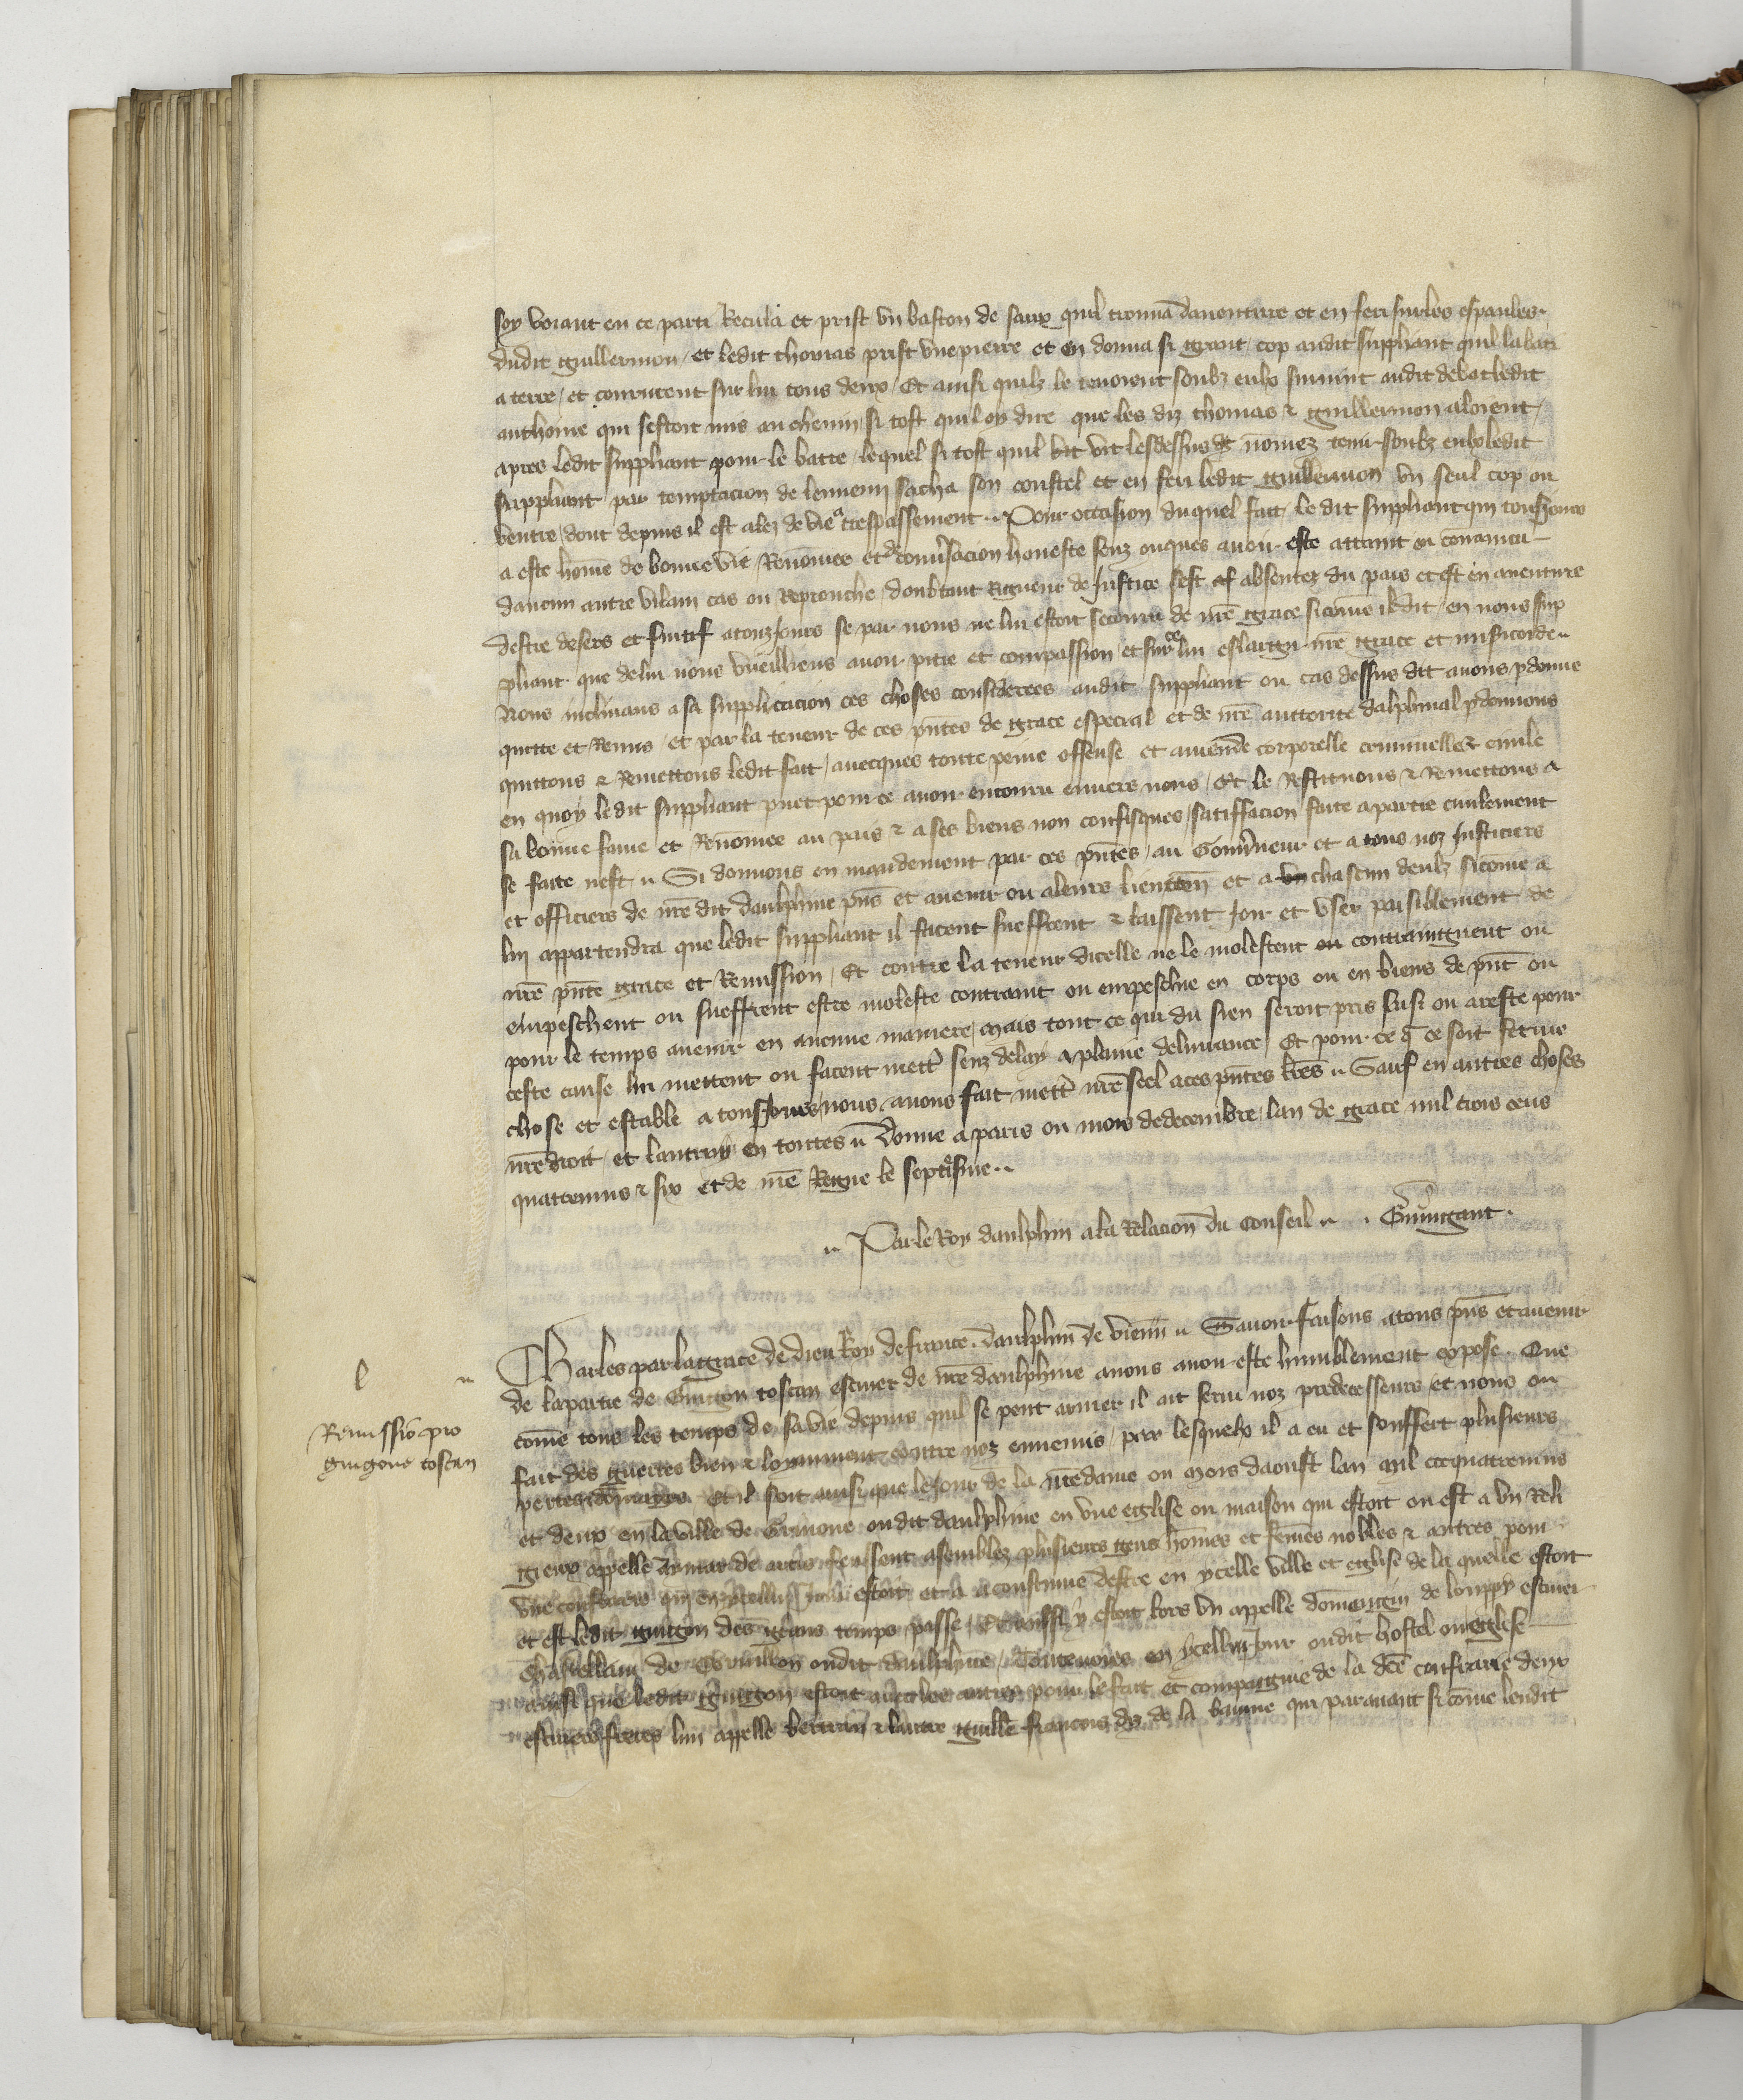 soy voiant en ce parti Recula et prist un baston de saux quil trouva daventure et en feri sur les espaules
dudit guillermon / et ledit thomas prist une pierre et en donna si grant cop audit suppliant quil labati
a terre / et coururent sur lui tous deux / Et ainsi quilz le tenoient soubz eulx survint audit debat ledit
anthoine qui sestoit mis au chemin si tost quil oy dire que les diz thomas & guillermon aloient /
apres ledit suppliant pour le batre / lequel si tost quil vit les dessus diz nom̃ez tenir soubz eulx ledit
suppliant par temptacion de lennemi sacha son coustel et en feri ledit guillermon un seul cop ou
ventre / dont depuis il est alez de vie a trespassement .. Pour occasion duquel fait le dit suppliant qui tousjours
a este hom̃e de bonne vie Renom̃ee et de conv̾sacion honeste senz onques avoir este attaint ou convaincu
daucun autre vilain cas ou Reprouche / doubtant Rigueur de Justice sest absentez du pais et est en aventure
destre desers et fuitif a touzjours se par nous ne lui estoit secouru de nr̃e grace si com̃e il dit / en nous sup
pliant que de lui nous vueilliens avoir pitie et compassion / et sur ce lui eslargir nr̃e grace et mis̾icorde ..
Nous inclinans a sa supplicacion ces choses considerees audit suppliant ou cas dessus dit avons p̱donne
quitte et Remis / et par la teneur de ces pñtes de grace especial et de nr̃e auctorite dalphinal p̱donnons
quittons & Remettons ledit fait / avecques toute peine offense et amende corporelle criminelle & civile
en quoy ledit suppliant puet pour ce avoir encouru envers nous / Et le Restituons & Remettons a
sa bonne fame et Renom̃ee au pais & a ses biens non confisques / satiffacion faite a partie civilement
se faite nest .. Si donnons en mandement par ces pñtes / au Gouv̾neur et a tous noz Justiciers
et officiers de nr̃e dit daulphine pñs et avenir ou a leurs lieuten̄ et a chascun deulz si com̃e a
lui appartendra que ledit suppliant il facent sueffrent & laissent Joir et user paisiblement de
nr̃e pñte grace et Remission / Et contre la teneur dicelle ne le molestent ou contraingnent ou
empeschent ou sueffrent estre moleste contraint ou empeschie en corps ou en biens de pñt ou
pour le temps avenir en aucune maniere / Mais tout ce qui du sien seroit pris saisi ou areste pour
ceste cause lui mettent ou facent mettr̾ senz delay a plaine delivrance Et pour ce q̃ ce soit ferme
chose et estable a tousjours / nous avons fait mettr̾ nr̃e seel a ces pñtes lr̃es .. Sauf en autres choses
nr̃e droit / et lautruy en toutes .. Donne a paris ou mois de decembre / lan de grace mil trois cens
quatrevins & six et de nr̃e Regne le septiesme ..
.. Par le Roy daulphin a la Relacion du Conseil ..
Charles par la grace de dieu Roy de france . daulphin de viennͥ .. Savoir faisons a tous pñs et avenir
de la partie de Guigon toscan escuier de nr̃e daulphine avons avoir este humblement expose . Que
com̃e tous les temps de sa vie depuis quil se peut armer il ait servi noz predecesseurs / et nous ou
Remissio pro
guigone toscan
fait des guerres bien & loyaument contre noz ennemis / par lesquelx il a eu et souffert plusieurs
pertes & dom̃ages Et il soit ainsi que le Jour de la nr̃e dame ou mois daoust lan mil ccc quatrevins
et deux en la ville de ondit daulphine en une eglise ou maison qui estoit ou est a un Reli
gieux appelle feussent asemblez plusieurs gens hom̃es et fem̃es nobles & autres pour
une qui en ycellui Jour estoit et a acoustume destre en ycelle ville et eglise de la quelle estoit
et est ledit guigon des grans temps passe / y estoit lors un appelle dom̃engin de louppy escuier
Chastellain de ondit daulphine / en ycellui Jour ondit hostel ou eglise
ainsi que ledit guigon estoit avec les autres pour le fait et compaignie de la dc̃e confrarie deux
escuiers freres lun appelle bertran & lautre guillẽ francois diz de la baume qui paravant si com̃e lendit